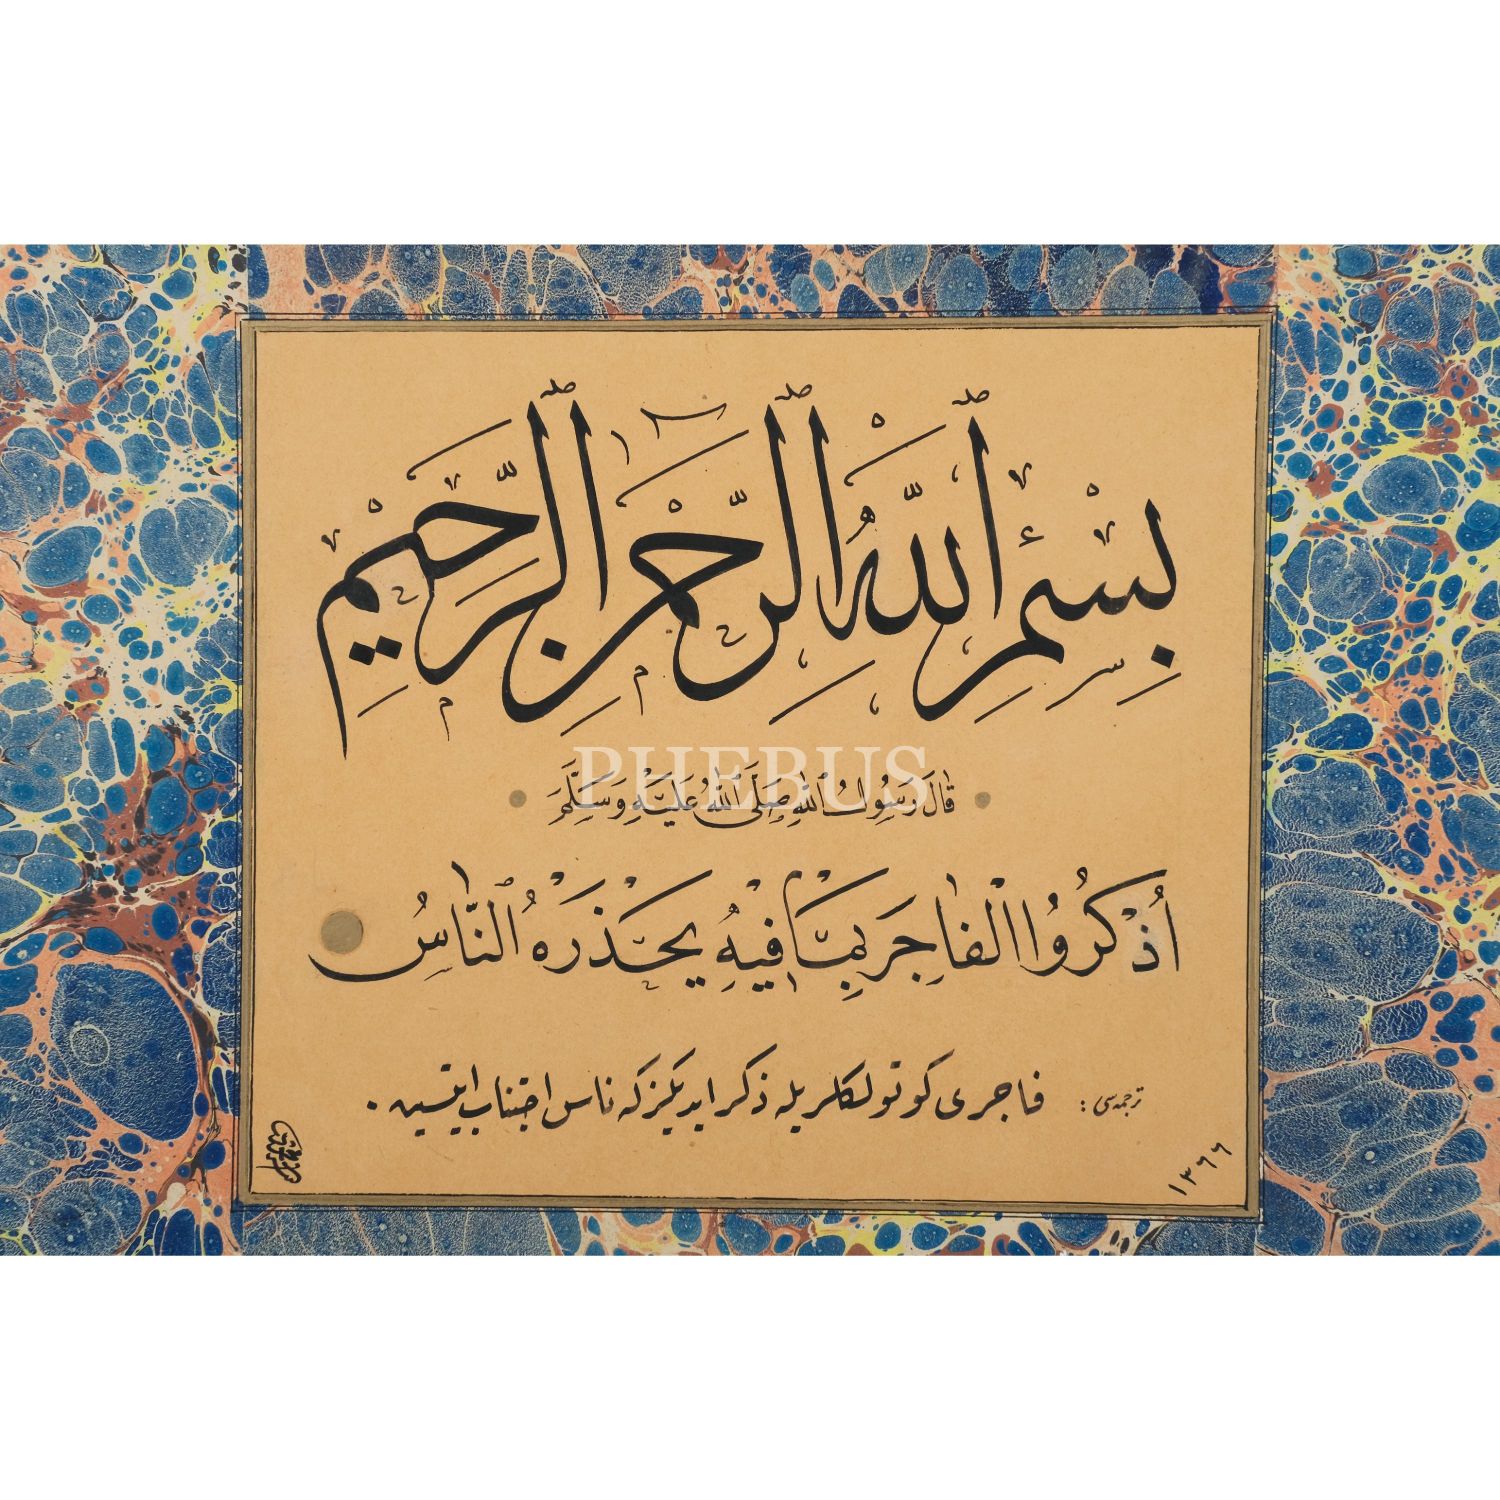 بِسْمِ ٱللّٰهِ ٱلرَّحْمٰنِ ٱلرَّحِيمِ
PHEBUS
قَالَ رَسُولُ ٱللّٰهِ صَلَّى ٱللّٰهُ عَلَيْهِ وَسَلَّمَ
اُذْكُرُوا ٱلْفَاجِرَ بِمَا فِيهِ يَحْذَرْهُ ٱلنَّاسُ
ترجمه‌سی : فاجری كوتولكلریله ذكر ایدیكز كه ناس اجتناب ایتسین .
١٣٦٦